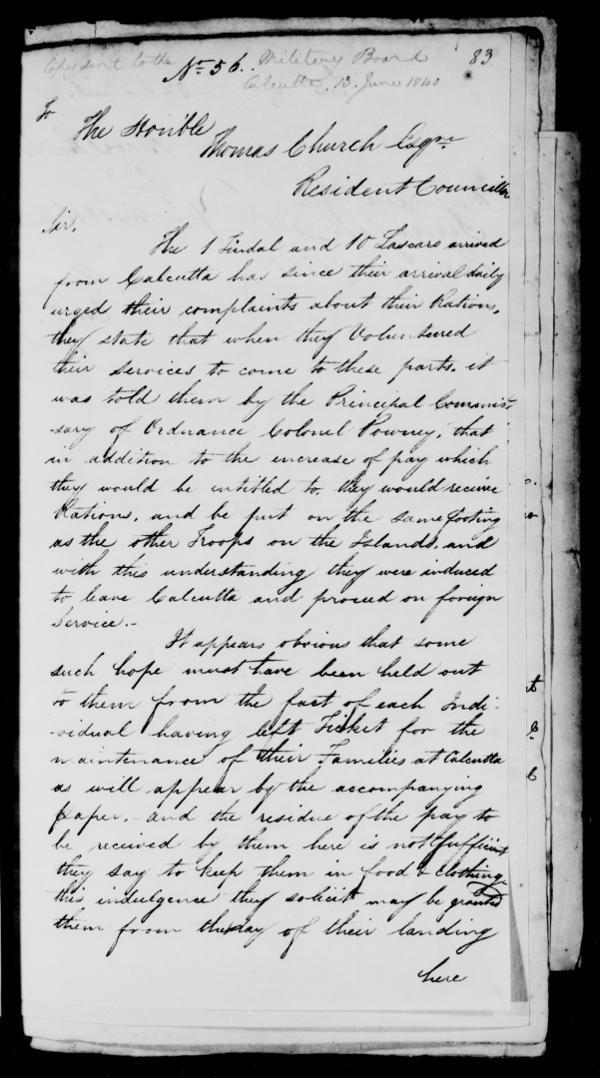 Copy sent to the Military Board 83
No 56. Calcutta, 13. June 1840
To
The Honble
Thomas Church Esqre
Resident Councillor
Sir,
The 1 Tindal and 10 Lascars arrived
from Calcutta has since their arrival daily
urged their complaints about their Ration,
they state that when they Volunteered
their services to come to these parts. it
was told them by the Principal Commis-
-sary of Ordnance Colonel Powney, that
in addition to the increase of pay which
they would be intitled to, they would receive
Rations, and be put on the same footing
as the other Troops on the Islands, and
with this understanding they were induced
to leave Calcutta and proceed on foreign
Service.-
It appears obvious that some
such hope must have been held out
to them from the fact of each Indi-
-vidual having left Ticket for the
maintenance of their Families at Calcutta
as will appear by the accompanying
paper, and the residue of the pay to
be received by them here is not sufficient
they say to keep them in food & clothing
this indulgence they solicit may be granted
them from the day of their landing
here